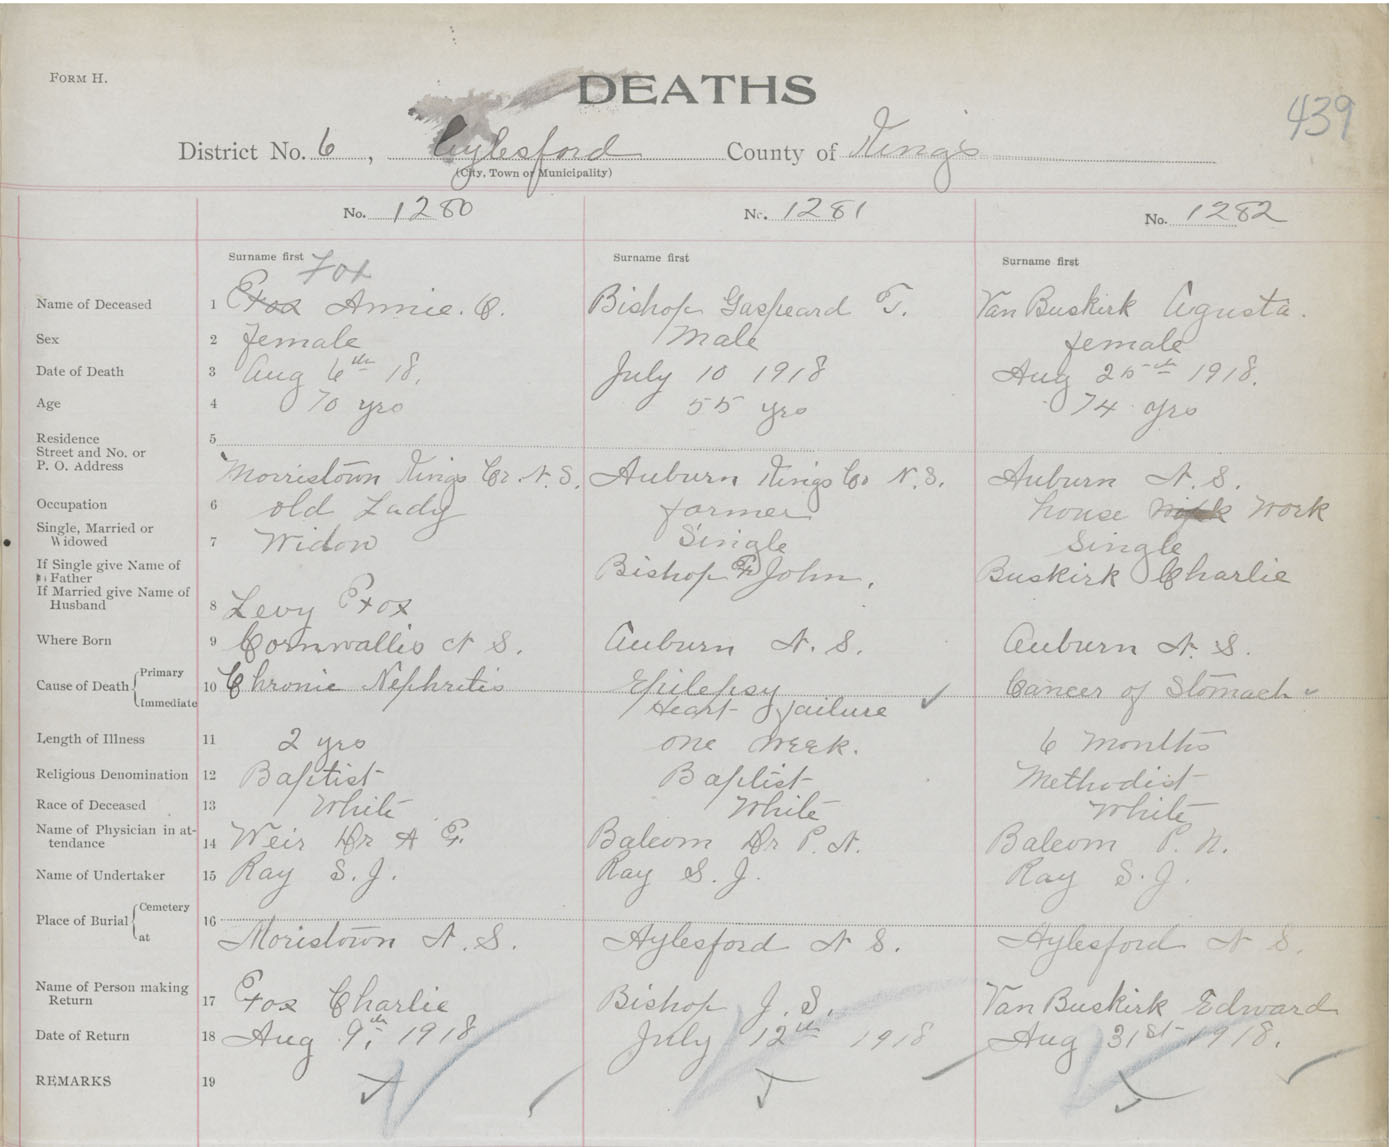 FORM H.
DEATHS
439
District No. 6, Aylesford County of Kings
(City, Town or Municipality)
No. 1280 No. 1281 No. 1282
Surname first Fox Surname first Surname first
Name of Deceased 1 Fox Annie. O. Bishop Gaspeard F. Van Buskirk Agusta.
Sex 2 female Male female
Date of Death 3 Aug 6th 18. July 10 1918 Aug 25th 1918.
Age 4 70 yrs 55 yrs 74 yrs
Residence 5
Street and No. or
P. O. Address Morristown Kings Co. N. S. Auburn Kings Co N. S. Auburn N. S.
Occupation 6 old Lady farmer house Work
Single, Married or
Widowed 7 Widow Single Single
If Single give Name of
Father Bishop John. Buskirk Charlie
If Married give Name of
Husband 8 Levy Fox
Where Born 9 Cornwallis N S. Auburn N. S. Auburn N. S.
Cause of Death Primary 10 Chronic Nephritis Epilepsy Cancer of Stomach
Immediate Heart failure
Length of Illness 11 2 yrs one week. 6 Months
Religious Denomination 12 Baptist Baptist Methodist
Race of Deceased 13 White White White
Name of Physician in at-
tendance 14 Weir Dr A F. Balcom Dr P. N. Balcom P. N.
Name of Undertaker 15 Ray S. J. Ray S. J. Ray S. J.
Place of Burial Cemetery 16
at Moristown N. S. Aylesford N S. Aylesford N S.
Name of Person making
Return 17 Fox Charlie Bishop J. S. Van Buskirk Edward
Date of Return 18 Aug 9th, 1918 July 12th 1918 Aug 31st 1918.
REMARKS 19